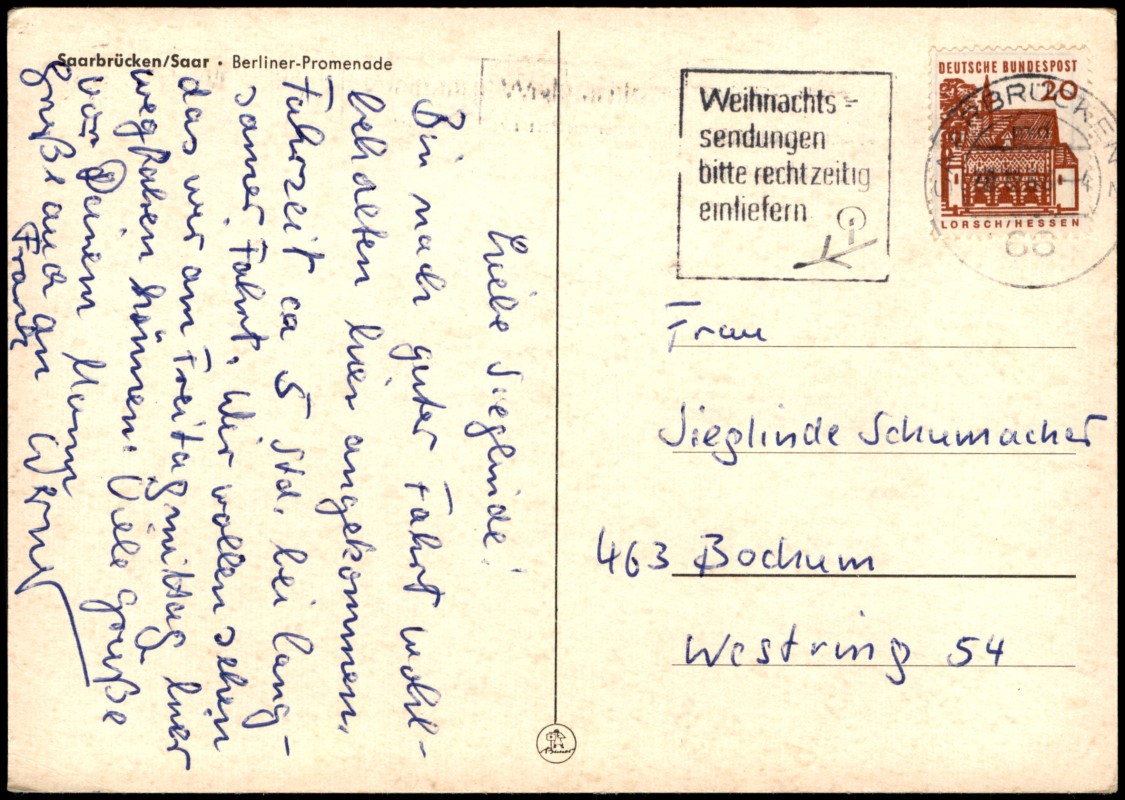 Saarbrücken/Saar · Berliner-Promenade
Liebe Sieglinde!
Bin nach guter Fahrt wohl-
behalten hier angekommen.
Fahrzeit ca 5 Std. bei lang-
samer Fahrt. Wir wollen sehen
das wir am Freitag mittag hier
wegfahren können. Viele Grüße
von Deinem Mann Werner
Grüße auch an
Frank
Weihnachts-
sendungen
bitte rechtzeitig
einliefern
DEUTSCHE BUNDESPOST
20
LORSCH/HESSEN
SAARBRÜCKEN 2
66
Frau
Sieglinde Schumacher
463 Bochum
Westring 54